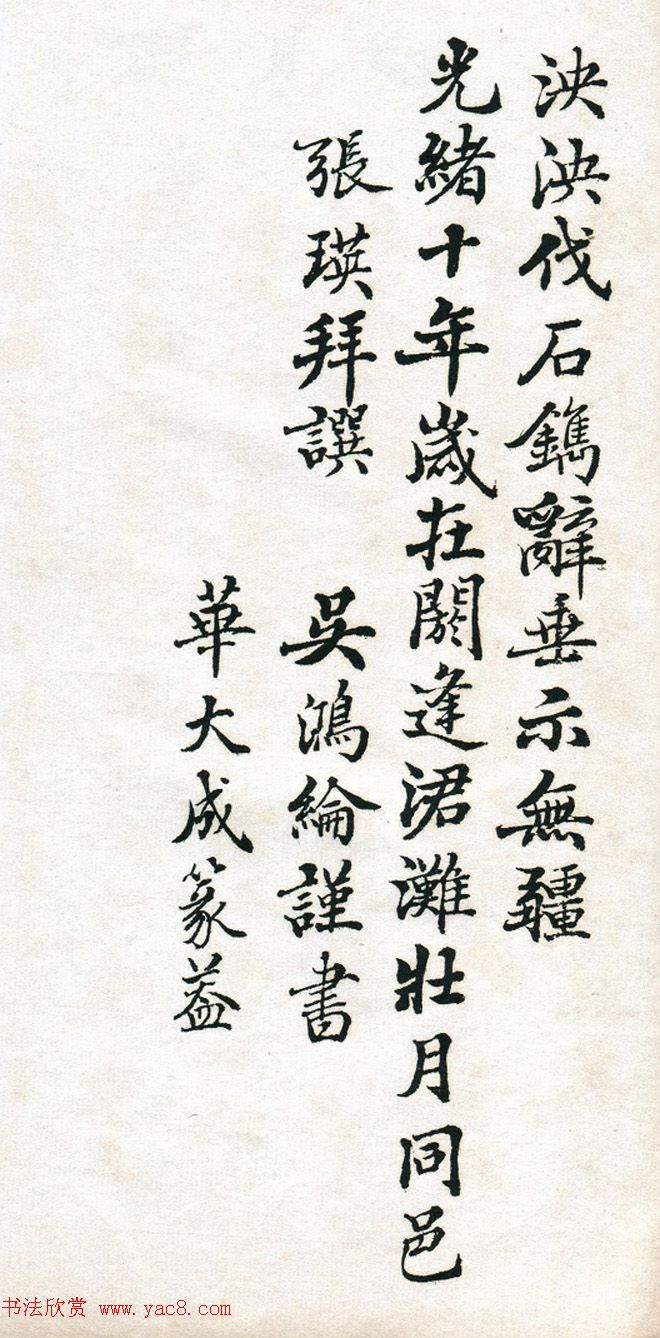 泱泱伐石鐫辭垂示無疆
光緒十年歲在閼逢涒灘壯月同邑
張瑛拜譔
吳鴻綸謹書
華大成篆葢
书法欣赏 www.yac8.com